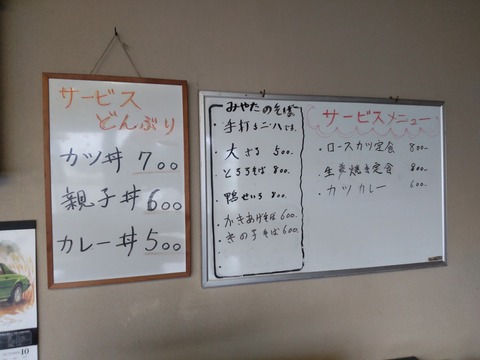 サービス
どんぶり
カツ丼 700
親子丼 600
カレー丼 500
みやたのそば
・手打ち二八です。
・大ざる 500.
・とろろそば 800.
・鴨せいろ 800.
・かきあげそば 600.
・きの子そば 600.
サービスメニュー
・ロースカツ定食 800.
・生姜焼き定食 800.
・カツカレー 600.
10